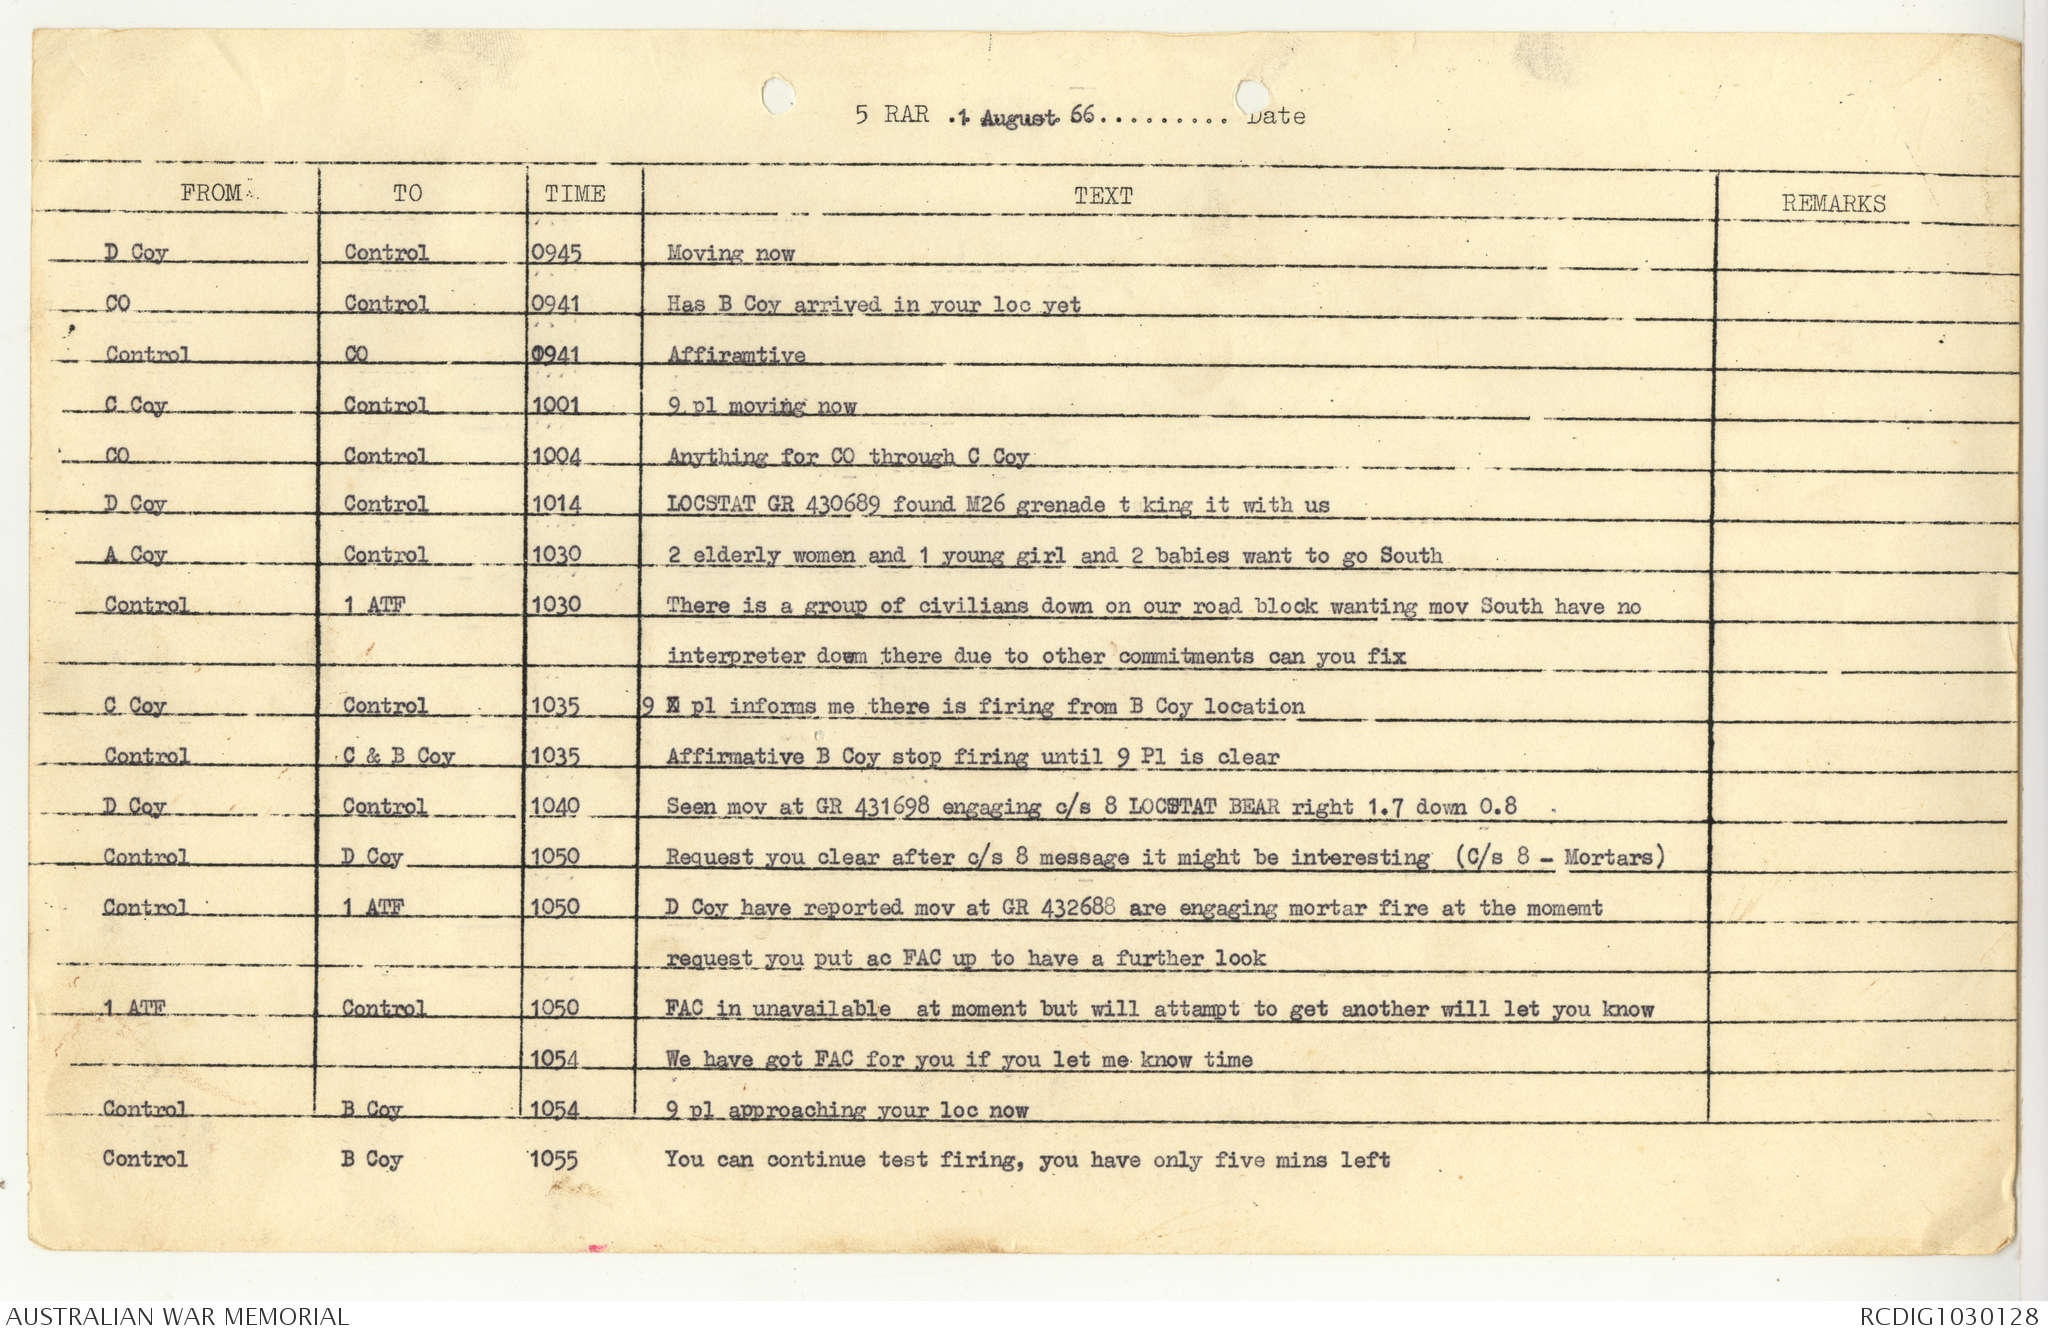 5 RAR .1 August 66.......... Date
FROM TO TIME TEXT REMARKS
D Coy Control 0945 Moving now
CO Control 0941 Has B Coy arrived in your loc yet
Control CO 0941 Affiramtive
C Coy Control 1001 9 pl moving now
CO Control 1004 Anything for CO through C Coy
D Coy Control 1014 LOCSTAT GR 430689 found M26 grenade t king it with us
A Coy Control 1030 2 elderly women and 1 young girl and 2 babies want to go South
Control 1 ATF 1030 There is a group of civilians down on our road block wanting mov South have no
interpreter dowm there due to other commitments can you fix
C Coy Control 1035 9 X pl informs me there is firing from B Coy location
Control C & B Coy 1035 Affirmative B Coy stop firing until 9 Pl is clear
D Coy Control 1040 Seen mov at GR 431698 engaging c/s 8 LOCSTAT BEAR right 1.7 down 0.8
Control D Coy 1050 Request you clear after c/s 8 message it might be interesting (C/s 8 - Mortars)
Control 1 ATF 1050 D Coy have reported mov at GR 432688 are engaging mortar fire at the momemt
request you put ac FAC up to have a further look
1 ATF Control 1050 FAC in unavailable at moment but will attampt to get another will let you know
1054 We have got FAC for you if you let me know time
Control B Coy 1054 9 pl approaching your loc now
Control B Coy 1055 You can continue test firing, you have only five mins left
AUSTRALIAN WAR MEMORIAL RCDIG1030128